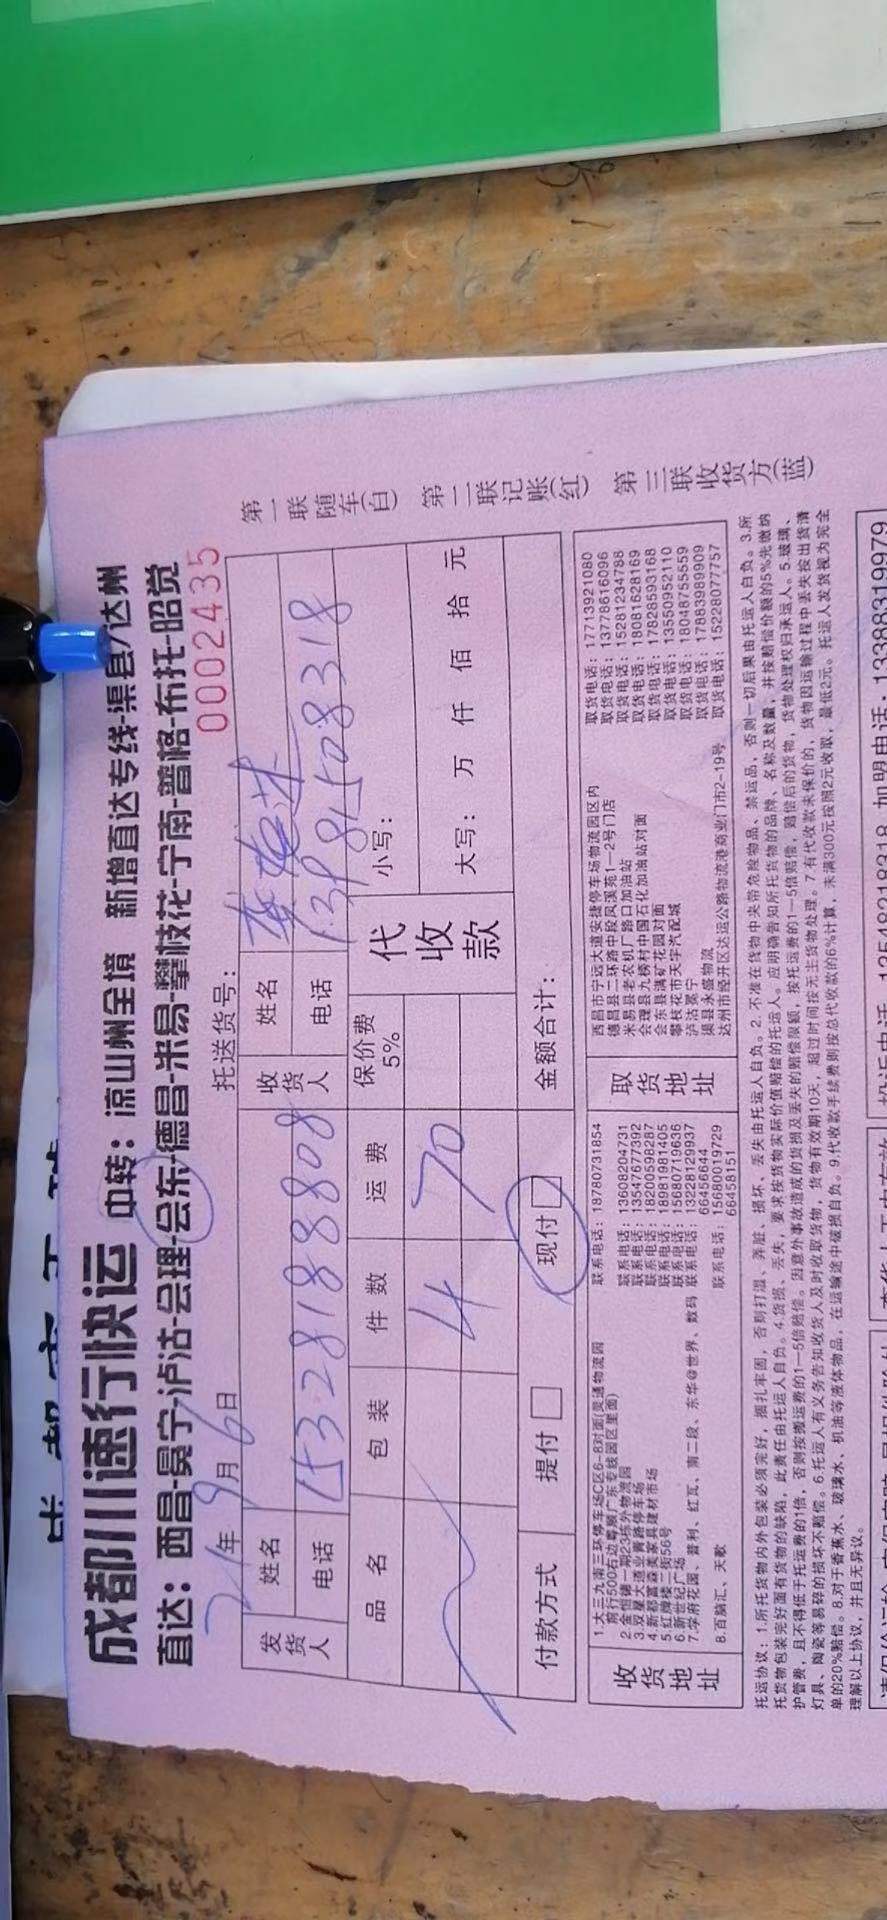 成都川速行快运 中转：凉山州全境 新增直达专线-渠县/达州
直达：西昌-冕宁-泸沽-会理-会东-德昌-米易-攀枝花-宁南-普格-布托-昭觉
21年9月6日 托送货号： 0002435
发货人 姓名 收货人 姓名
电话 15328188808 电话 13981508318
品名 包装 件数 运费 保价费5% 代收款 小写：
4 70 大写： 万 仟 佰 拾 元
付款方式 提付□ 现付□ 金额合计：
第一联随车(白) 第二联记账(红) 第三联收货方(蓝)
收货地址
1.大三九南三环停车场C区6-8对面(灵通物流园 联系电话：18780731854
前行500右边尊顺广东专线园区里面)
2.金恒德一期23栋外物流园 联系电话：13608204731
3.双星大道业青路停车场 联系电话：13547677392
4.新都富森美家具建材市场 联系电话：18200598287
5.红牌楼二街56号 联系电话：18981981405
6.新世纪广场 联系电话：15680719636
7.学府花园、普利、红瓦、南二段、东华@世界、数码 联系电话：13228129937
66456644
8.百脑汇、天歌 联系电话：15680019729
66458151
取货地址
西昌市宁远大道安捷停车场物流园区内 取货电话：17713921080
德昌县二环路中段凤溪苑1-2号门店 取货电话：13778616096
米易县老农机厂路口加油站 取货电话：15281234788
会理县九榜村中国石化加油站对面 取货电话：18081628169
会东县满矿花园对面 取货电话：17828593168
攀枝花市天宇汽配城 取货电话：13550952110
泸沽冕宁 取货电话：18048755559
渠县永盛物流 取货电话：17883989909
达州市经开区达运公路物流港商业门市2-19号 取货电话：15228077757
托运协议：1.所托货物内外包装必须完好，捆扎牢固，否则打湿、弄脏、损坏、丢失由托运人自负。2.不准在货物中夹带危险物品、禁运品，否则一切后果由托运人自负。3.所
托货物包装完好面有货物的缺陷，此责任由托运人自负。4.货损、丢失，要求按货物实际价值赔偿的托运人。应明确告知所托货物的品牌、名称及数量，并按赔偿价额的5%先缴纳
护管费，且不得低于托运费的1倍，否则按搬运费的1—5倍赔偿。因意外事故造成的货损及丢失的赔偿限额，按托运费的1—5倍赔偿，赔偿后的货物，货物处理权归承运人。5.玻璃、
灯具、陶瓷等易碎的损坏不赔偿。6.托运人有义务告知收货人及时收取货物，货物有效期10天，超过时间按无主货物处理。7.有代收款未保价的，货物因运输过程中丢失按出货清
单的20%赔偿。8.对于香蕉水、玻璃水、机油等液体物品，在运输途中破损自负。9.代收款手续费则按总代收款的6%计算，未满300元按照2元收取，最低2元。托运人发货视为完全
理解以上协议，并且无异议。
加盟电话：13388319979